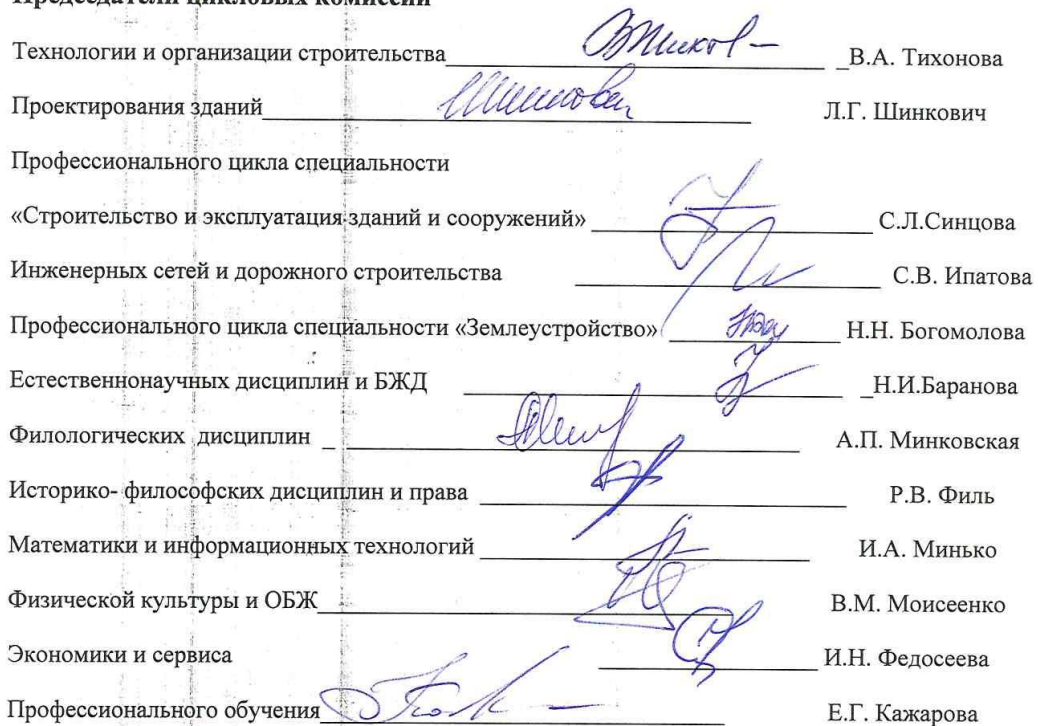 Председатели цикловых комиссий
Технологии и организации строительства _В.А. Тихонова
Проектирования зданий Л.Г. Шинкович
Профессионального цикла специальности
«Строительство и эксплуатация зданий и сооружений» С.Л.Синцова
Инженерных сетей и дорожного строительства С.В. Ипатова
Профессионального цикла специальности «Землеустройство» Н.Н. Богомолова
Естественнонаучных дисциплин и БЖД _Н.И.Баранова
Филологических дисциплин _ А.П. Минковская
Историко- философских дисциплин и права Р.В. Филь
Математики и информационных технологий И.А. Минько
Физической культуры и ОБЖ В.М. Моисеенко
Экономики и сервиса И.Н. Федосеева
Профессионального обучения Е.Г. Кажарова